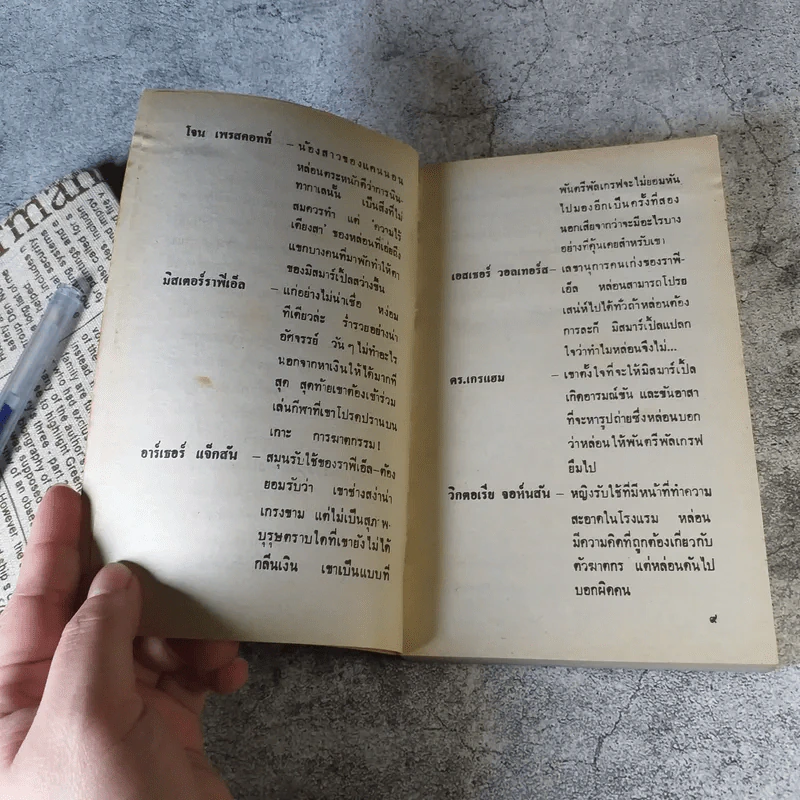 โจน เพรสคอทท์ – น้องสาวของแคนนอน
หล่อนตระหนักดีว่าการนิน-
ทากาเลนั้น เป็นสิ่งที่ไม่
สมควรทำ แต่ 'ความไร้
เดียงสา' ของหล่อนที่เอ่ยถึง
แขกบางคนที่มาพักทำให้ตา
ของมิสมาร์เปิ้ลสว่างขึ้น
มิสเตอร์ราฟีเอ็ล – แก่อย่างไม่น่าเชื่อ หง่อม
ทีเดียวล่ะ ร่ำรวยอย่างน่า
อัศจรรย์ วันๆ ไม่ทำอะไร
นอกจากหาเงินให้ได้มากที่
สุด สุดท้ายเขาต้องเข้าร่วม
เล่นกีฬาที่เขาโปรดปรานบน
เกาะ การฆาตกรรม!
อาร์เธอร์ แจ็คสัน – สมุนรับใช้ของราฟีเอ็ล–ต้อง
ยอมรับว่า เขาช่างสง่าน่า
เกรงขาม แต่ไม่เป็นสุภาพ-
บุรุษตราบใดที่เขายังไม่ได้
กลิ่นเงิน เขาเป็นแบบที่
พันตรีพัลเกรฟจะไม่ยอมหัน
ไปมองอีกเป็นครั้งที่สอง
นอกเสียจากว่าจะมีอะไรบาง
อย่างที่คุ้นเคยสำหรับเขา
เอสเธอร์ วอลเทอร์ส – เลขานุการคนเก่งของราฟี-
เอ็ล หล่อนสามารถโปรย
เสน่ห์ไปได้ทั่วถ้าหล่อนต้อง
การละก็ มิสมาร์เปิ้ลแปลก
ใจว่าทำไมหล่อนจึงไม่...
ดร.เกรแฮม – เขาตั้งใจที่จะให้มิสมาร์เปิ้ล
เกิดอารมณ์ขัน และขันอาสา
ที่จะหารูปถ่ายซึ่งหล่อนบอก
ว่าหล่อนให้พันตรีพัลเกรฟ
ยืมไป
วิกตอเรีย จอห์นสัน – หญิงรับใช้ที่มีหน้าที่ทำความ
สะอาดในโรงแรม หล่อน
มีความคิดที่ถูกต้องเกี่ยวกับ
ตัวฆาตกร แต่หล่อนดันไป
บอกผิดคน
๙